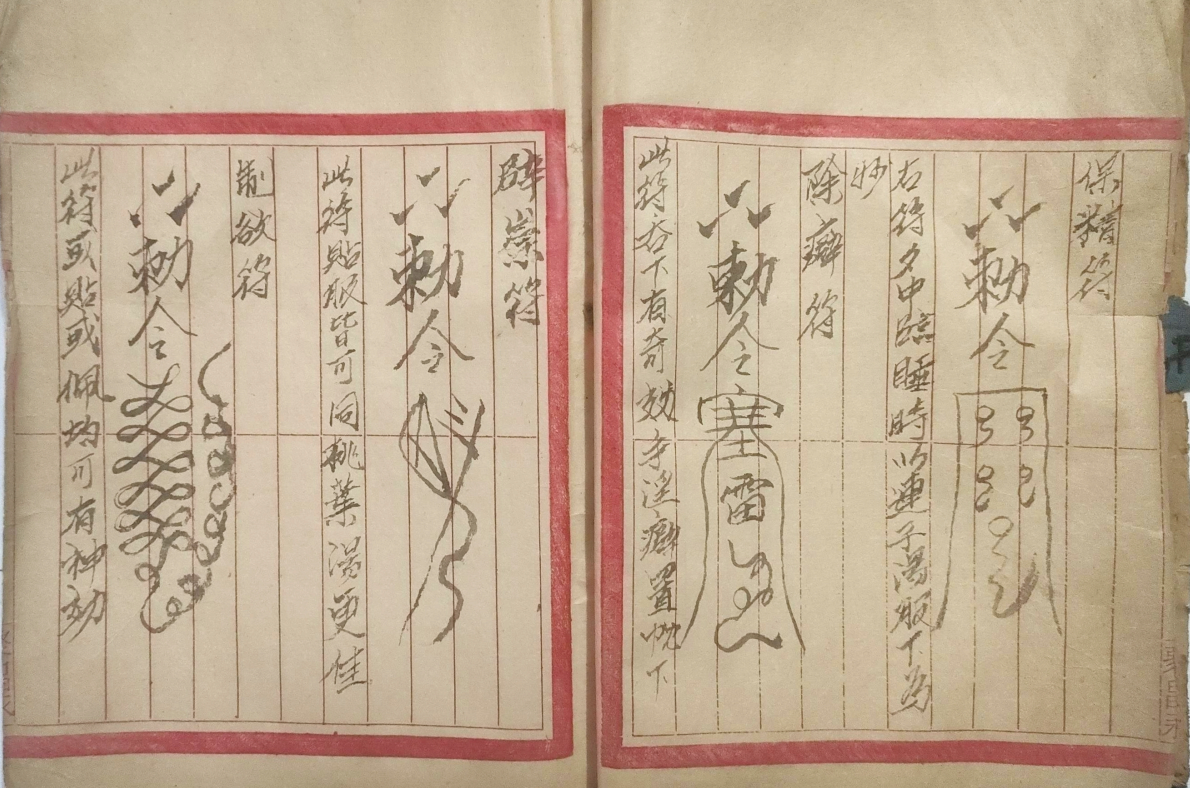 保精符
敕令
右符夕中臨睡時以連子湯服下為
妙
除癖符
敕令
塞
雷
此符吞下有奇効手淫癖置枕下
辟祟符
敕令
此符貼服皆可同桃葉湯更佳
制欲符
敕令
此符或貼或佩均可有神効